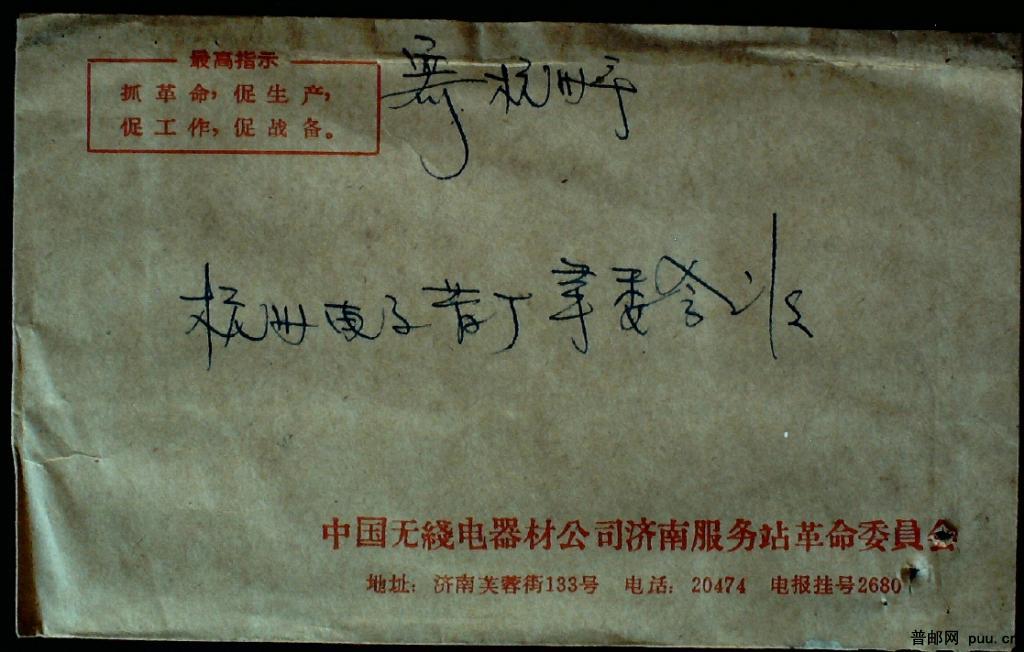 最高指示
抓革命，促生产，
促工作，促战备。
寄杭州市
杭州电子管厂革委会收
中国无綫电器材公司济南服务站革命委員会
地址：济南芙蓉街133号 电话：20474 电报挂号2680
普邮网 puu.cn